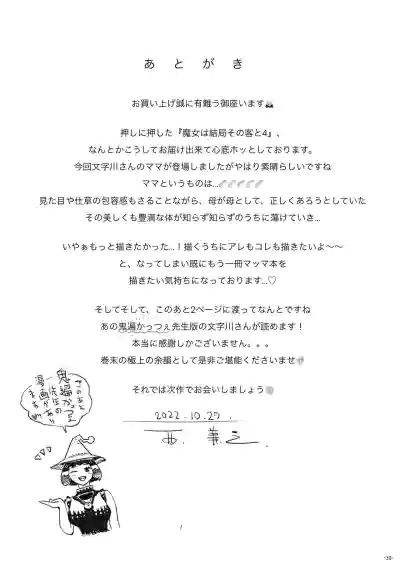 あとがき
お買い上げ誠に有難う御座います
押しに押した『魔女は結局その客と4』、
なんとかこうしてお届け出来て心底ホッとしております。
今回文字川さんのママが登場しましたがやはり素晴らしいですね
ママというものは…
見た目や仕草の包容感もさることながら、母が母として、正しくあろうとしていた
その美しくも豊満な体が知らず知らずのうちに蕩けていき…
いやぁもっと描きたかった…！描くうちにアレもコレも描きたいよ〜〜
と、なってしまい既にもう一冊マッマ本を
描きたい気持ちになっております…♡
そしてそして、このあと2ページに渡ってなんとですね
あの鬼遍かっつぇ先生版の文字川さんが読めます！
本当に感謝しかございません。。。
巻末の極上の余韻として是非ご堪能くださいませ
それでは次作でお会いしましょう
2022.10.27.
このあと
鬼遍かっつぇ
先生の
漫画があり
ますわ
-39-